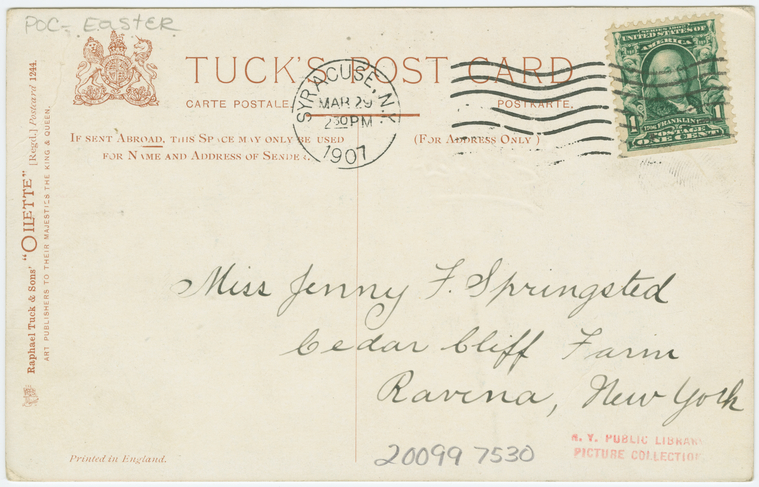 POC- Easter
TUCK'S POST CARD
CARTE POSTALE.
POSTKARTE.
IF SENT ABROAD, THIS SPACE MAY ONLY BE USED
FOR NAME AND ADDRESS OF SENDER.
(FOR ADDRESS ONLY)
SYRACUSE, N.Y.
MAR 29
2 30 PM
1907
SERIES 1902
UNITED STATES OF
AMERICA
1 1
1706 FRANKLIN
POSTAGE
ONE CENT
Raphael Tuck & Sons' "OILETTE" [Regd.] Postcard 1244.
ART PUBLISHERS TO THEIR MAJESTIES THE KING & QUEEN.
Miss Jenny F. Springsted
Cedar Cliff Farm
Ravena, New York
20099 7530
N. Y. PUBLIC LIBRARY
PICTURE COLLECTION
Printed in England.